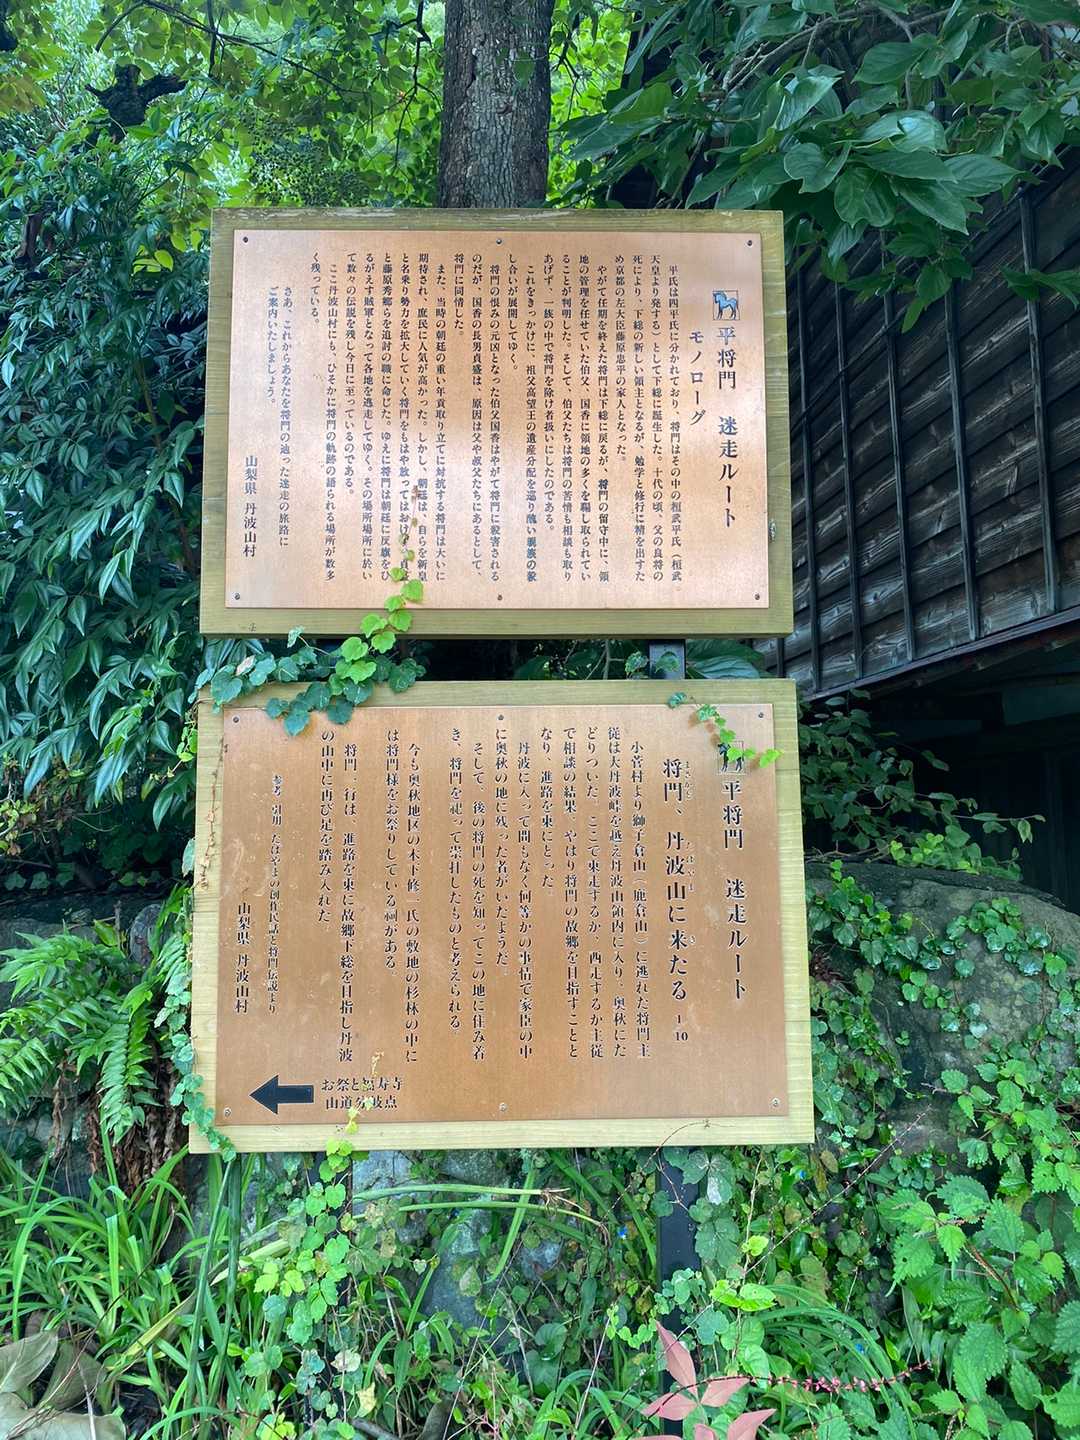 平将門 迷走ルート
モノローグ
平氏は四平氏に分かれており、将門はその中の桓武平氏（桓武
天皇より発する）として下総に誕生した。十代の頃、父の良将の
死により、下総の新しい領主となるが、勉学と修行に精を出すた
め京都の左大臣藤原忠平の家人となった。
やがて任期を終えた将門は下総に戻るが、将門の留守中に、領
地の管理を任せていた伯父、国香に領地の多くを騙し取られてい
ることが判明した。そして、伯父たちは将門の苦情も相談も取り
あげず、一族の中で将門を除け者扱いにしたのである。
これをきっかけに、祖父高望王の遺産分配を巡り醜い親族の殺
し合いが展開してゆく。
将門の恨みの元凶となった伯父国香はやがて将門に殺害される
のだが、国香の長男貞盛は、原因は父や叔父たちにあるとして、
将門に同情した。
また、当時の朝廷の重い年貢取り立てに対抗する将門は大いに
期待され、庶民に人気が高かった。しかし、朝廷は、自らを新皇
と名乗り勢力を拡大していく将門をもはや放ってはおけ
と藤原秀郷らを追討の職に命じた。ゆえに将門は朝廷に反旗をひ
るがえす賊軍となって各地を逃走してゆく。その場所場所に於い
て数々の伝説を残し今日に至っているのである。
ここ丹波山村にも、ひそかに将門の軌跡の語られる場所が数多
く残っている。
さあ、これからあなたを将門の辿った迷走の旅路に
ご案内いたしましょう。
山梨県 丹波山村
平将門 迷走ルート
将門、丹波山に来たる 1-10
まさかど たばやま き
小菅村より獅子倉山（鹿倉山）に逃れた将門主
従は大丹波峠を越え丹波山領内に入り、奥秋にた
どりついた。ここで東走するか、西走するか主従
で相談の結果、やはり将門の故郷を目指すことと
なり、進路を東にとった。
丹波に入って間もなく何等かの事情で家臣の中
に奥秋の地に残った者がいたようだ。
そして、後の将門の死を知ってこの地に住み着
き、将門を祀って崇拝したものと考えられる。
今も奥秋地区の木下修一氏の敷地の杉林の中に
は将門様をお祭りしている祠がある。
将門一行は、進路を東に故郷下総を目指し丹波
の山中に再び足を踏み入れた。
参考、引用 たばやまの創作民話と将門伝説より
山梨県 丹波山村
お祭と福寿寺
山道分岐点